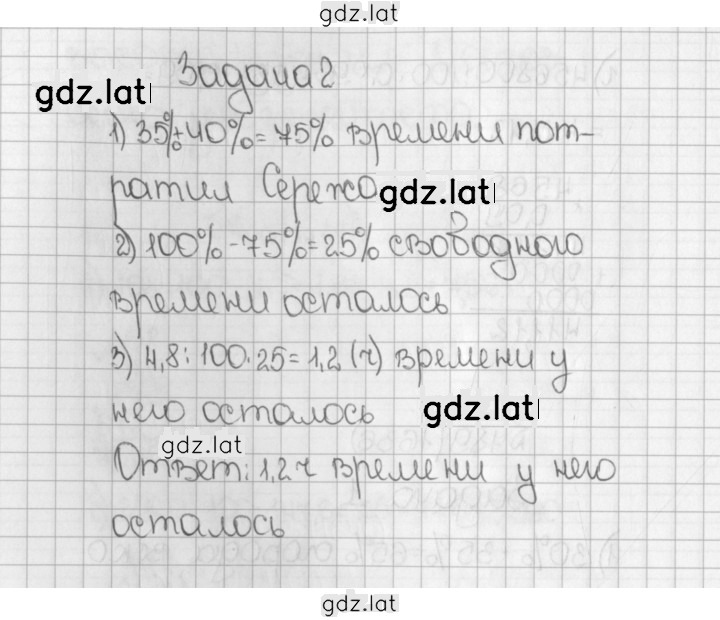 gdz.lat
Задача 2
gdz.lat
1) 35%+40%=75% времени пот-
ратил Сережа
gdz.lat
2) 100%-75%=25% свободного
времени осталось
3) 4,8:100·25=1,2 (ч) времени у
него осталось
gdz.lat
gdz.lat
Ответ: 1,2 ч времени у него
осталось
gdz.lat